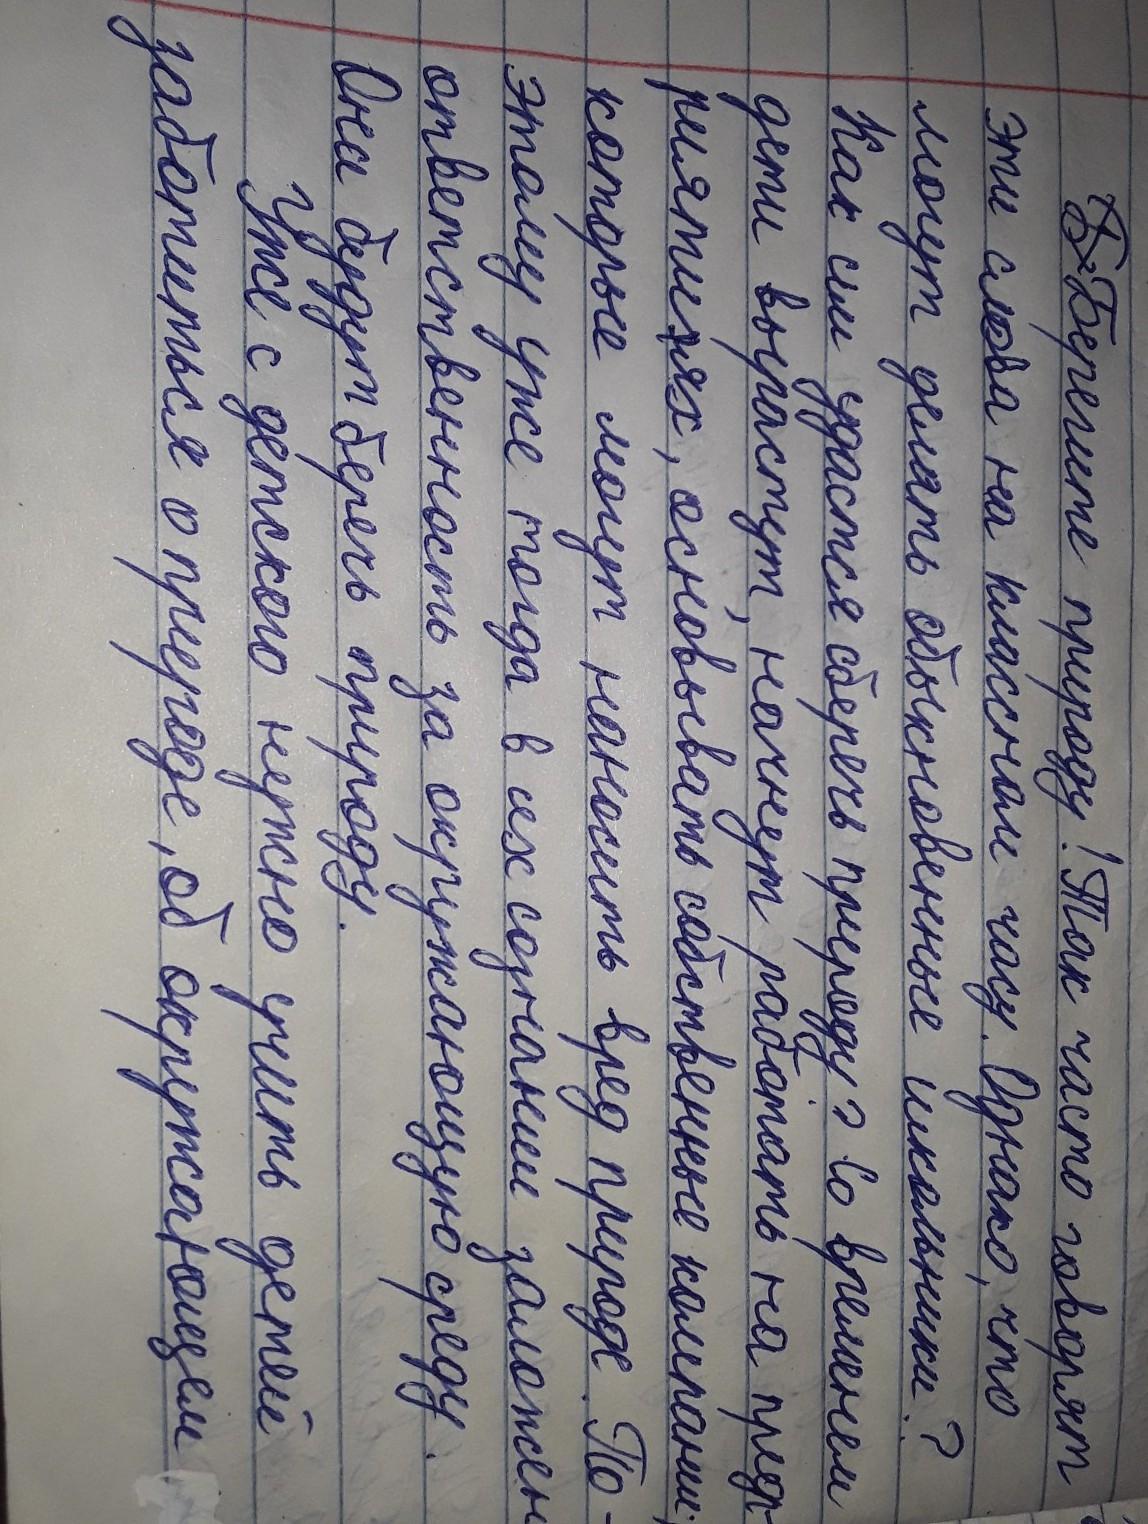 Берегите природу! Так часто говорят
эти слова на классном часу. Однако, что
могут делать обыкновенные школьники?
Как им удастся сберечь природу? Со временем
дети вырастут, начнут работать на пред-
риятиях, основывать собственные компании,
которые могут наносить вред природе. По-
этому уже тогда в их сознании заложен
ответственность за окружающую среду.
Они будут беречь природу.
Уже с детского нужно учить детей
заботиться о природе, об окружающем